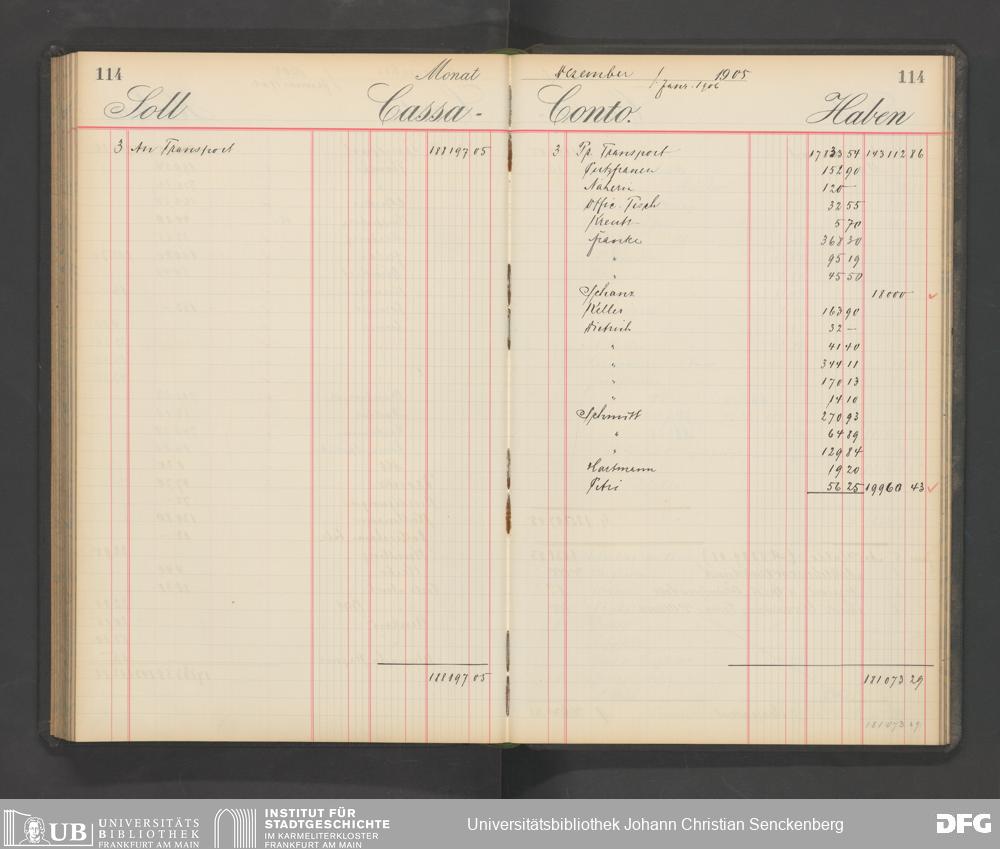 114
Monat
Soll
Cassa-
3 An Transport 188197 05
188197 05
Dezember / 1905
Janr. 1906
114
Conto.
Haben
3 Pp. Transport 17833 54 143112 86
Putzfrauen 152 90
Näherin 120 —
Offic. Tisch 32 55
Kreuth 5 70
Francke 368 30
" 95 19
" 45 50
Schanz 18000
Keller 163 90
Dietrich 32 —
" 41 40
" 344 11
" 170 13
" 14 10
Schmitt 270 93
" 64 89
" 129 84
Hartmann 19 20
Petri 56 25 19960 43
181073 29
181073 29
UB UNIVERSITÄTS
BIBLIOTHEK
FRANKFURT AM MAIN
INSTITUT FÜR
STADTGESCHICHTE
IM KARMELITERKLOSTER
FRANKFURT AM MAIN
Universitätsbibliothek Johann Christian Senckenberg
DFG